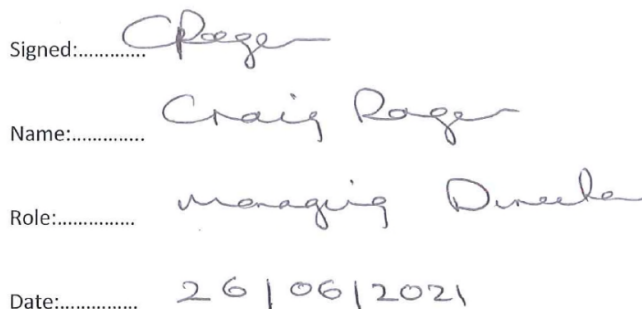 Signed:............. CRoger
Name:.............. Craig Roger
Role:............... Managing Director
Date:............... 26/06/2021